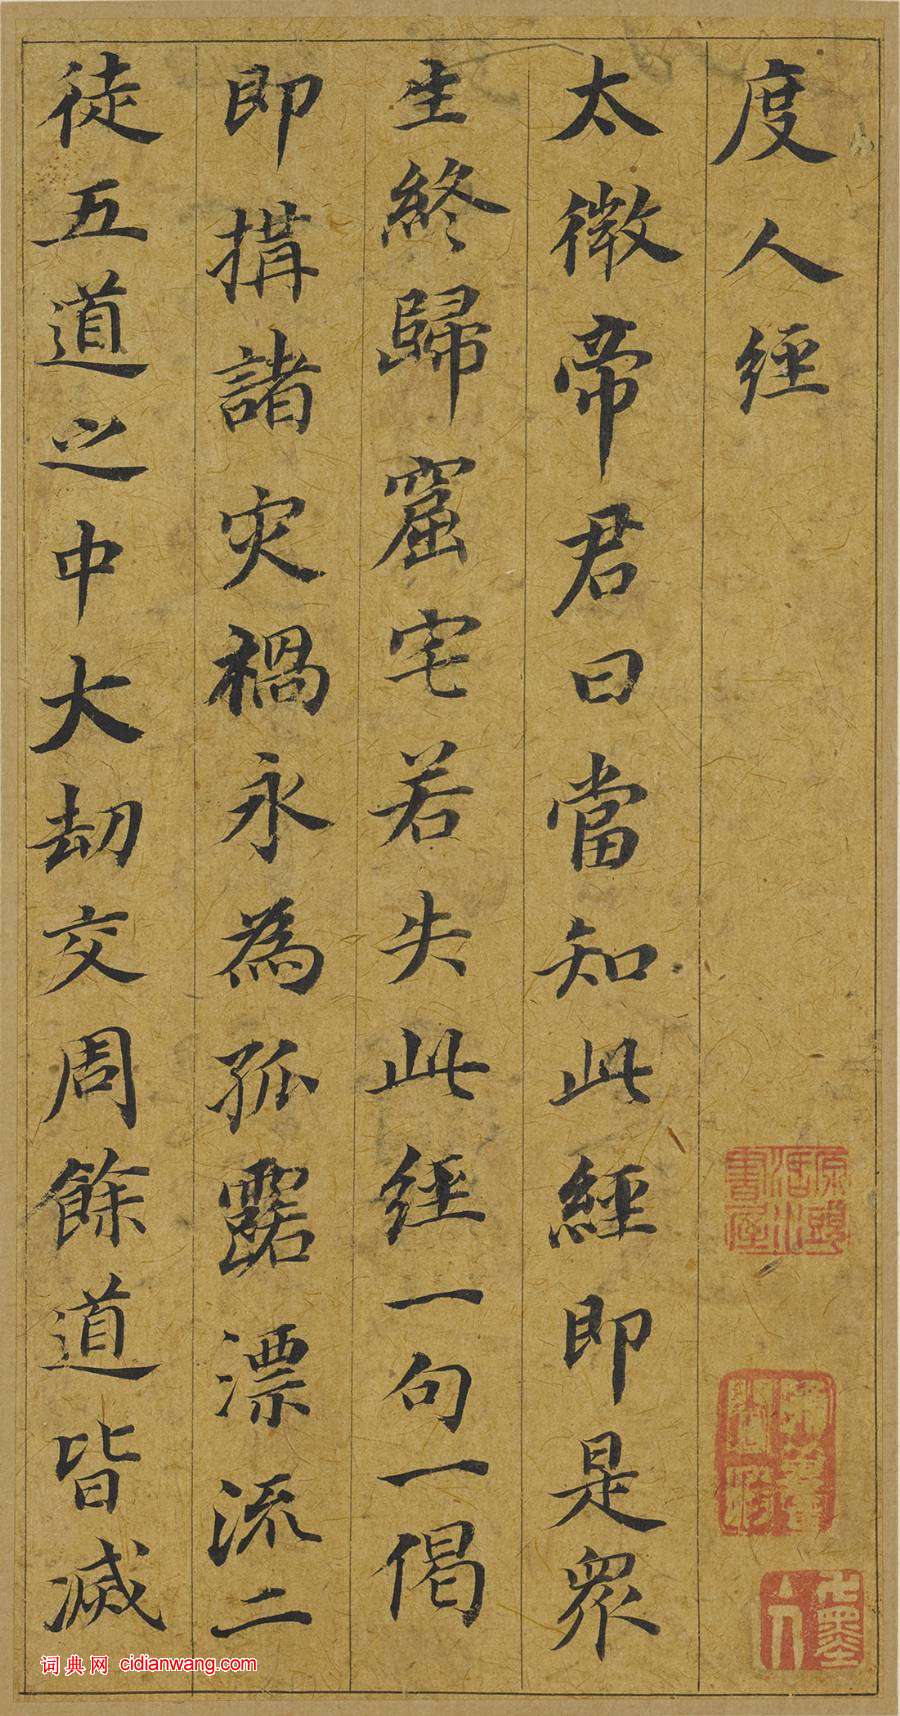 度人經
太微帝君曰當知此經即是眾
生終歸窟宅若失此經一句一偈
即搆諸灾禍永為孤露漂流二
徒五道之中大劫交周餘道皆滅
词典网 cidianwang.com